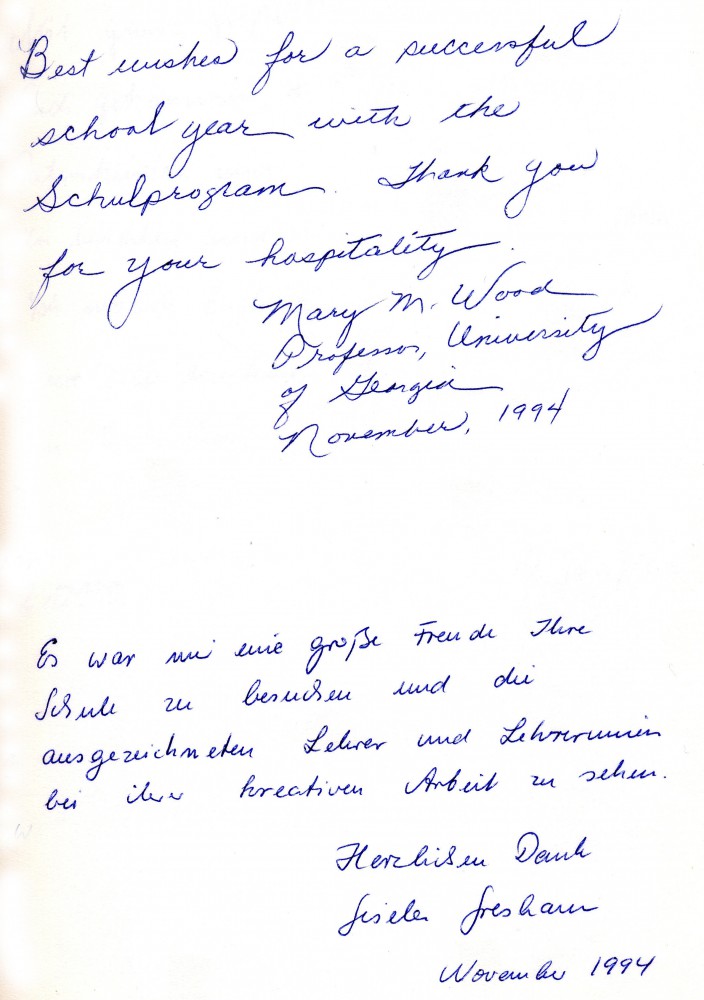 Best wishes for a successful
school year with the
Schulprogram. Thank you
for your hospitality.
Mary M. Wood
Professor, University
of Georgia
November, 1994
Es war mir eine große Freude Ihre
Schule zu besuchen und die
ausgezeichneten Lehrer und Lehrerinnen
bei ihrer kreativen Arbeit zu sehen.
Herzlichen Dank
Gisela Gresham
November 1994